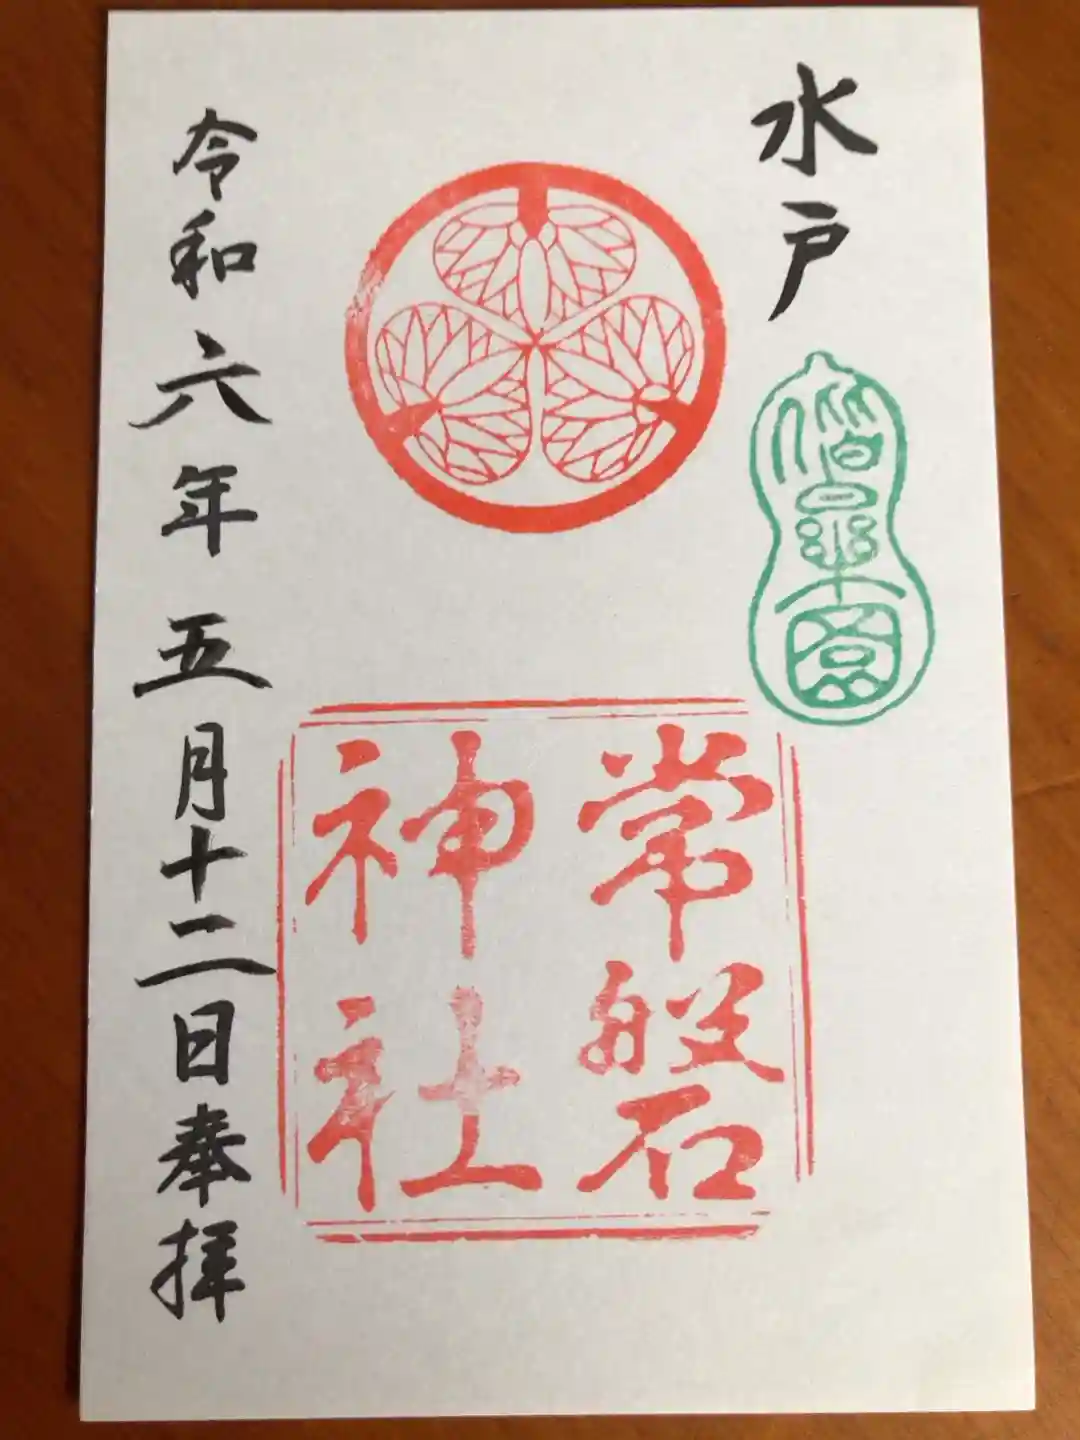 水戸
偕楽園
常磐
神社
令和六年五月十二日奉拝